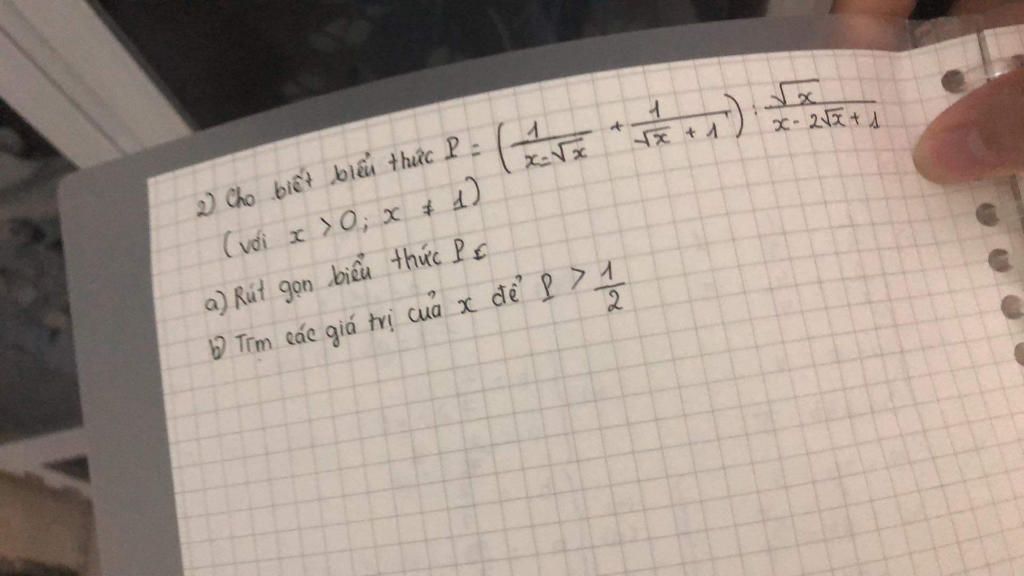 2) Cho biết biểu thức P = (1/(x-√x) + 1/(√x + 1)) : √x/(x - 2√x + 1)
(với x > 0; x ≠ 1)
a) Rút gọn biểu thức P
b) Tìm các giá trị của x để P > 1/2